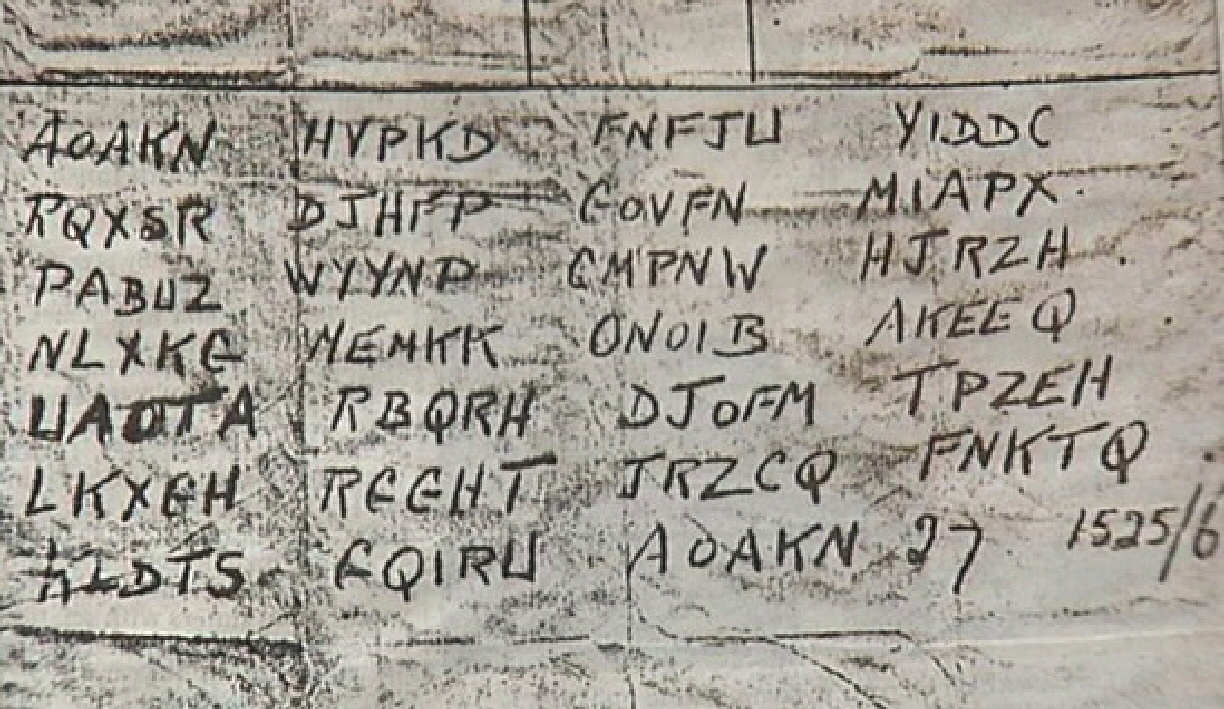 AOAKN HVPKD FNFJU YIDDC
RQXSR DJHFP GOVFN MIAPX
PABUZ WYYNP CMPNW HJRZH
NLXKG MEMKK ONOIB AKEEQ
UAOTA RBQRH DJOFM TPZEH
LKXGH RGGHT JRZCQ FNKTQ
KLDTS GQIRU AOAKN 27 1525/6